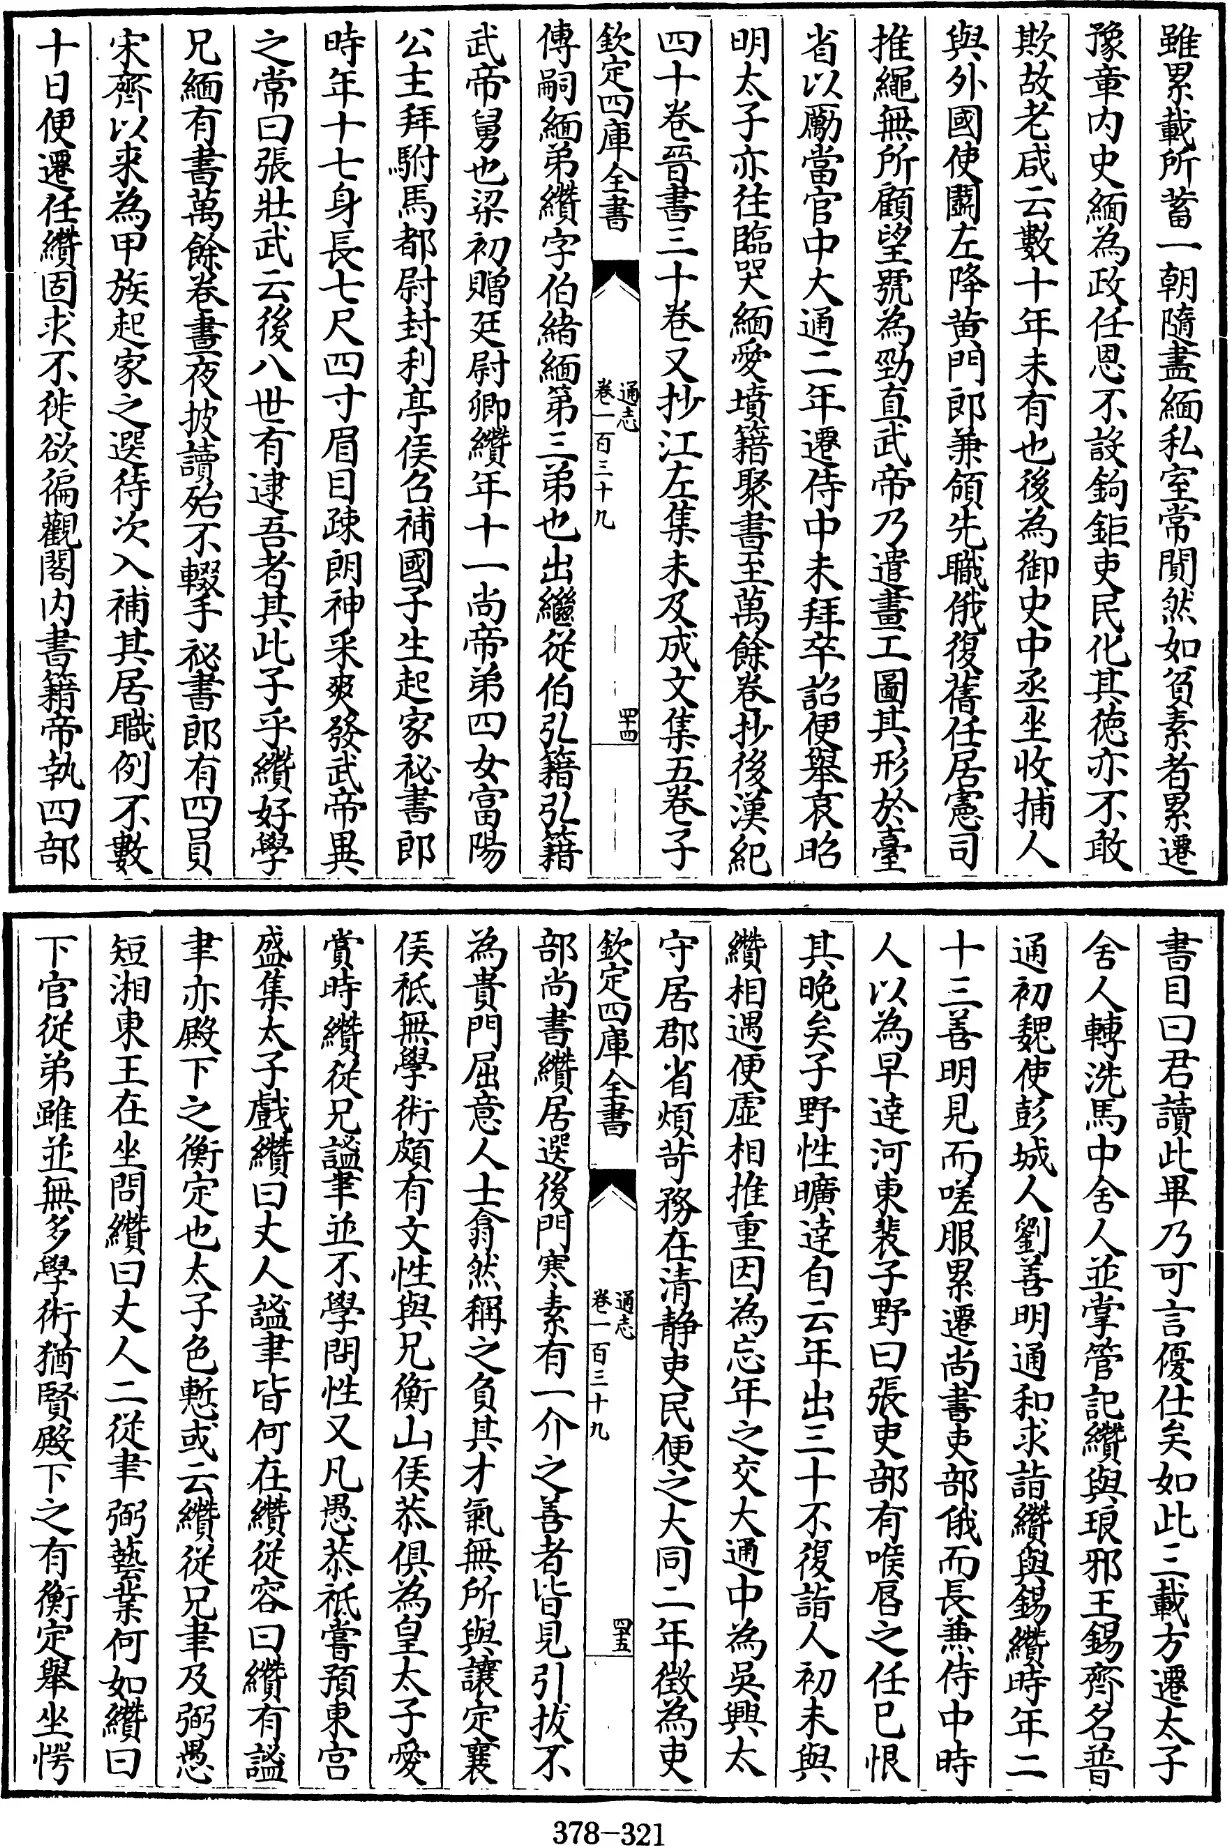 雖累載所蓄一朝隨盡緬私室常閴然如貧素者累遷
豫章内史緬為政任恩不設鉤鉅吏民化其德亦不敢
欺故老咸云數十年未有也後為御史中丞坐收捕人
與外國使鬬左降黄門郎兼領先職俄復舊任居憲司
推繩無所顧望號為勁直武帝乃遣畫工圖其形於臺
省以勵當官中大通二年遷侍中未拜卒詔便舉哀昭
明太子亦往臨哭緬愛墳籍聚書至萬餘卷抄後漢紀
四十卷晉書三十卷又抄江左集未及成文集五卷子
欽定四庫全書
通志
卷一百三十九
四十四
傳嗣緬弟纘字伯緒緬第三弟也出繼從伯弘籍弘籍
武帝舅也梁初贈廷尉卿纘年十一尚帝弟四女富陽
公主拜駙馬都尉封利亭侯召補國子生起家祕書郎
時年十七身長七尺四寸眉目疎朗神采爽發武帝異
之常曰張壯武云後八世有逮吾者其此子乎纘好學
兄緬有書萬餘卷晝夜披讀殆不輟手祕書郎有四員
宋齊以来為甲族起家之選待次入補其居職例不數
十日便遷任纘固求不徙欲徧觀閣内書籍帝執四部
書目曰君讀此畢乃可言優仕矣如此三載方遷太子
舍人轉洗馬中舍人並掌管記纘與琅邪王錫齊名普
通初魏使彭城人劉善明通和求詣纘與錫纘時年二
十三善明見而嗟服累遷尚書吏部俄而長兼侍中時
人以為早逹河東裴子野曰張吏部有喉唇之任已恨
其晚矣子野性曠逹自云年出三十不復詣人初未與
纘相遇便虚相推重因為忘年之交大通中為吳興太
守居郡省煩苛務在清静吏民便之大同二年徴為吏
欽定四庫全書
通志
卷一百三十九
四十五
部尚書纘居選後門寒素有一介之善者皆見引拔不
為貴門屈意人士翕然稱之負其才氣無所與讓定襄
侯祇無學術頗有文性與兄衡山侯恭俱為皇太子愛
賞時纘從兄謐聿並不學問性又凡愚恭祇嘗預東宫
盛集太子戲纘曰丈人謐聿皆何在纘從容曰纘有謐
聿亦殿下之衡定也太子色慙或云纘從兄聿及弼愚
短湘東王在坐問纘曰丈人二從聿弼藝業何如纘曰
下官從弟雖並無多學術猶賢殿下之有衡定舉坐愕
378-321